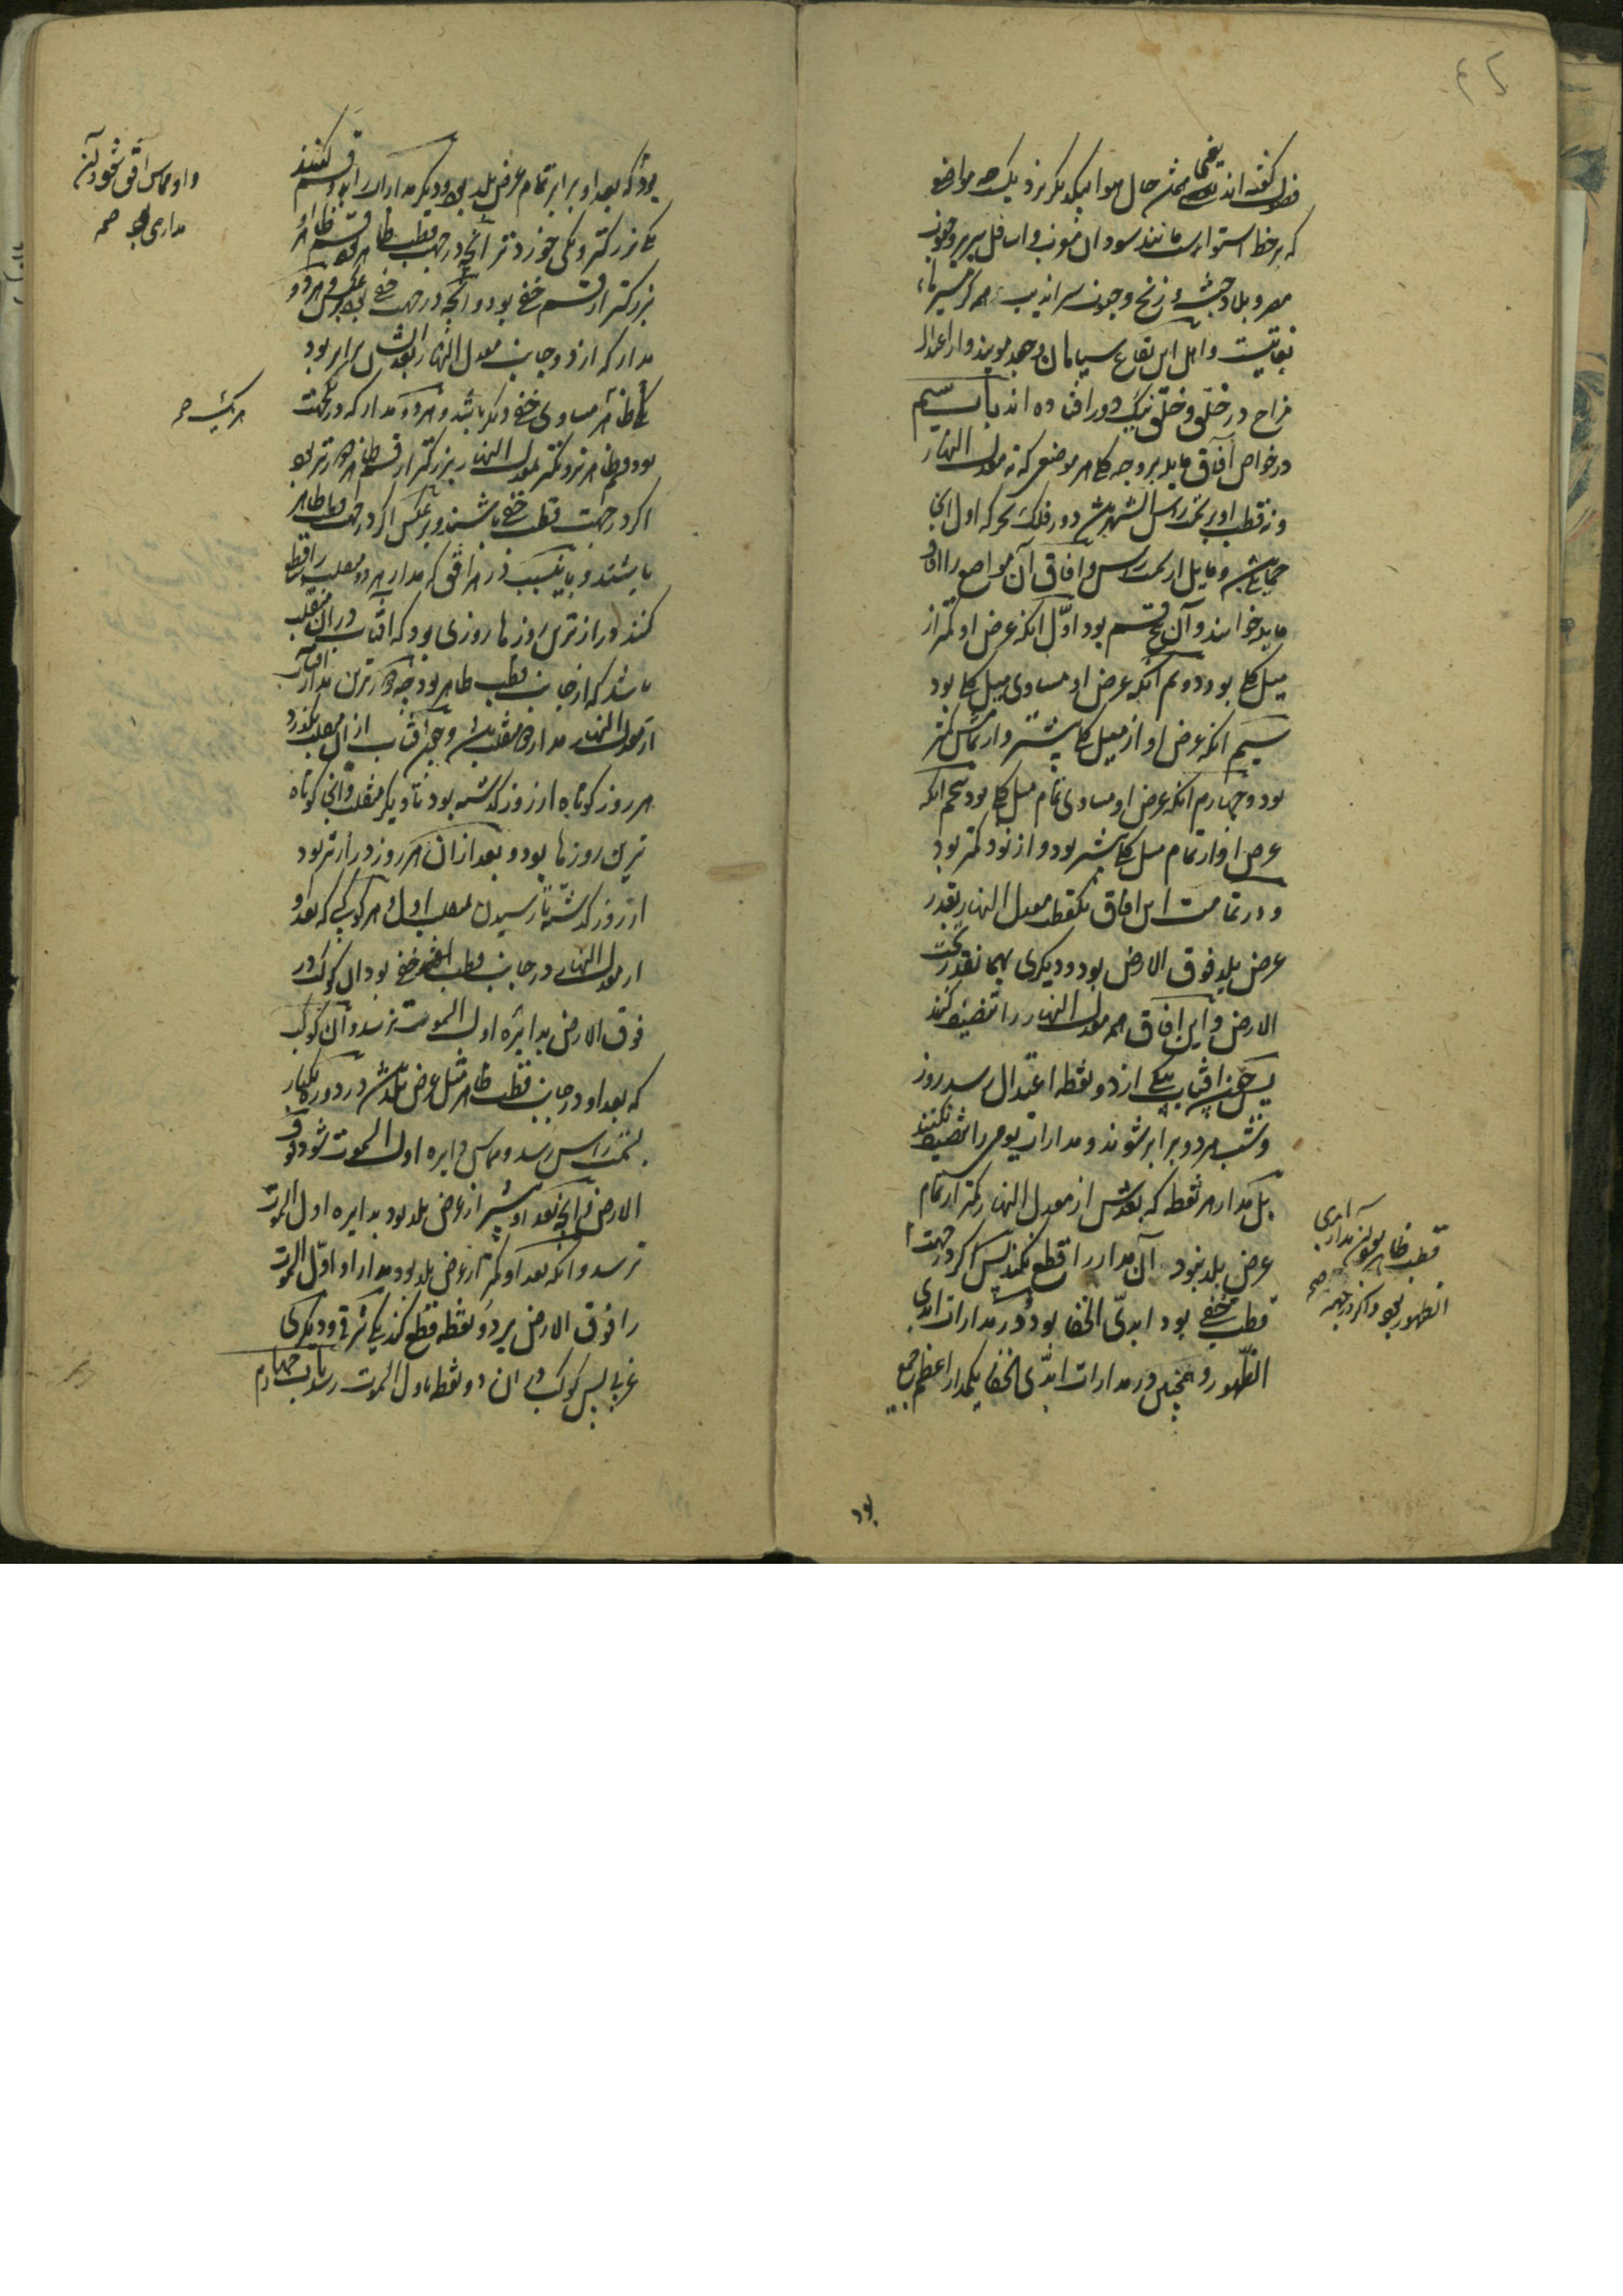 فصول گفته‌اند یعنی حال هوا بیکدیگر نزدیک چه مواضع
که بر خط استوا اند مانند سودان مغرب و اسافل بربر و جنوب
مصر و بلاد حبشه و زنج و جنوب سراندیب همه گرمسیرها
بغایتست و اهل این بقاع سیاهان و جعد مویند و از اعتدال
مزاج در خلق و خلق نیک دور افتاده‌اند باب سیم
در خواص آفاق مایله بر وجه کلی هر موضعی که نه معدل النهار
و نه قطب او بر سمت راس
مایل از سمت راس و آفاق آن مواضع را آفاق
مایله خوانند و آن پنج قسم بود اول آنکه عرض او کمتر از
میل کلی بود و دوم آنکه عرض او مساوی میل کلی بود
سیم آنکه عرض او از میل کلی بیشتر و از تمامش کمتر
بود و چهارم آنکه عرض او مساوی تمام میل کلی بود پنجم آنکه
عرض او از تمام میل کلی بیشتر بود و از نود کمتر بود
و در تمامت این آفاق یک قطب معدل النهار بقدر
عرض بلد فوق الارض بود و دیگری بهمانقدر تحت
الارض و این آفاق همه معدل النهار را تنصیف کنند
پس چون آفتاب بیکی از دو نقطه اعتدال رسد روز
و شب هر دو برابر شوند و مدارات یومی را تنصیف نکنند
بل مدار هر نقطه که بعدش از معدل النهار کمتر از تمام
عرض بلد نبود آن مدار را قطع نکند پس اگر در جهت
قطب خفی بود ابدی الخفا بود و در مدارات ابدی
الظهور و همچنین در مدارات ابدی الخفا یک مدار اعظم جمیع
قطب ظاهر بود آن مدار ابدی
الظهور بود و اگر در جهت صح
بود
بود که بعد او برابر تمام عرض بلد بود و دیگر مدارات را بدو قسم کنند
یکی بزرگتر و یکی خوردتر آنچه در جهت قطب ظاهر بود قسم ظاهر او
بزرگتر از قسم خفی بود و آنچه در جهت خفی بود بر عکس و هر دو
مدار که از دو جانب معدل النهار بعدشان برابر بود
ظاهر یکی مساوی خفی دیگر باشد و هر دو مدار که در یکجهت
بود قسم ظاهر نزدیکتر بمعدل النهار بزرگتر از قسم ظاهر دورتر بود
اگر در جهت قطب خفی باشند و بر عکس اگر در جهت قطب ظاهر
باشند و باین سبب در هر افق که مدار هر دو منقلب را قطع
کند درازترین روزها روزی بود که آفتاب در آن منقلب
باشد که از جانب قطب ظاهر بود چه دورترین مدار آفتاب
از معدل النهار مدار منقلب است و چون آفتاب از آن منقلب بگذرد
هر روز کوتاه‌تر از روز گذشته بود تا دیگر منقلب و آنجا کوتاه
ترین روزها بود و بعد از آن هر روز درازتر بود
از روز گذشته تا رسیدن بمنقلب اول و هر کوکبی که بعد او
از معدل النهار در جانب قطب خفی بود آن کوکب در
فوق الارض بدایره اول السموت نرسد و آن کوکب
که بعد او در جانب قطب ظاهر مثل عرض بلد باشد در دوره یکبار
بسمت راس رسد و مماس دایره اول السموت شود فوق
الارض و آنچه بعد او بیشتر از عرض بلد بود بدایره اول السموت
نرسد و آنکه بعد او کمتر از عرض بلد بود مدار او اول السموت
را فوق الارض بر دو نقطه قطع کند یکی شرقی و دیگری
غربی پس کوکب در آن دو نقطه باول السموت رسد باب چهارم
و او مماس افق شود و آن
مداری بود صح
هر یک صح